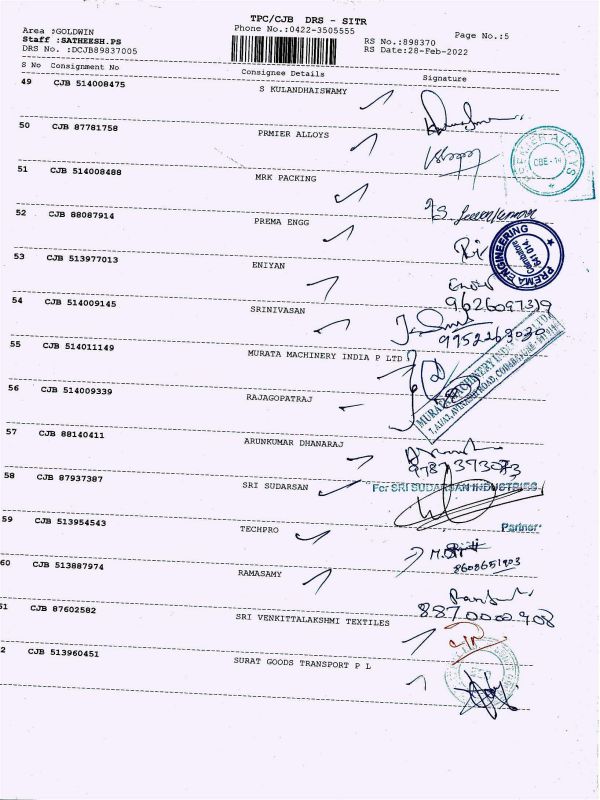 TPC/CJB DRS - SITR
Area :GOLDWIN
Phone No.:0422-3505555
Page No.:5
Staff :SATHEESH.PS
RS No.:898370
DRS No. :DCJB89837005
RS Date:28-Feb-2022
S No Consignment No Consignee Details Signature
49 CJB 514008475 S KULANDHAISWAMY
50 CJB 87781758 PRMIER ALLOYS
CBE - 14
51 CJB 514008488 MRK PACKING
52 CJB 88087914 PREMA ENGG
PREMA ENGINEERING
Coimbatore
641 014.
53 CJB 513977013 ENIYAN
9626097319
54 CJB 514009145 SRINIVASAN
9752263030
55 CJB 514011149 MURATA MACHINERY INDIA P LTD
56 CJB 514009339 RAJAGOPATRAJ
57 CJB 88140411 ARUNKUMAR DHANARAJ
58 CJB 87937387 SRI SUDARSAN
For SRI SUDARSAN INDUSTRIES
Partner
59 CJB 513954543 TECHPRO
8608651903
60 CJB 513887974 RAMASAMY
8870000908
51 CJB 87602582 SRI VENKITTALAKSHMI TEXTILES
2 CJB 513960451 SURAT GOODS TRANSPORT P L